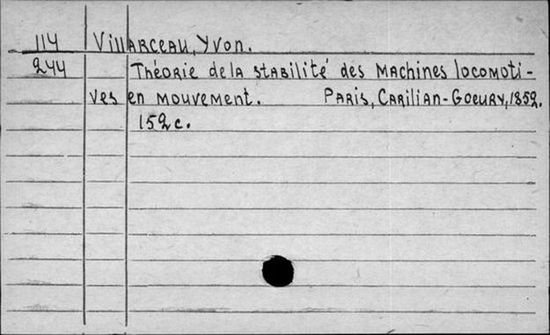 114 Villarceau, Yvon.
244 Théorie de la stabilité des machines locomoti-
ves en mouvement. Paris, Carilian-Goeury, 1852.
152 c.